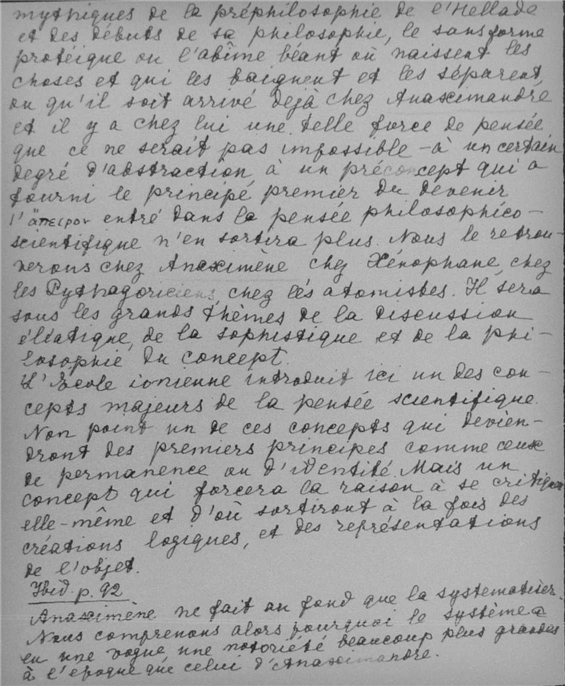 mythiques de la préphilosophie de l'Hellade
et des débuts de sa philosophie, le sans forme
protéique ou l'abîme béant où naissent les
choses et qui les baignent et les séparent,
ou qu'il soit arrivé déjà chez Anaximandre
et il y a chez lui une telle force de pensée
que ce ne serait pas impossible - à un certain
degré d'abstraction à un préconcept qui a
fourni le principe premier du devenir
l'ἄπειρον entré dans la pensée philosophico-
scientifique n'en sortira plus. Nous le retrou-
verons chez Anaximène chez Xénophane, chez
les Pythagoriciens, chez les atomistes. Il sera
sous les grands thèmes de la discussion
éléatique, de la sophistique et de la phi-
losophie du concept.
L'École ionienne introduit ici un des con-
cepts majeurs de la pensée scientifique.
Non point un de ces concepts qui devien-
dront des premiers principes comme ceux
de permanence ou d'identité. Mais un
concept qui forcera la raison à se critiquer
elle-même et d'où sortiront à la fois des
créations logiques, et des représentations
de l'objet.
Ibid. p. 92
Anaximène ne fait au fond que la systématiser.
Nous comprenons alors pourquoi le système a
eu une vogue une notoriété beaucoup plus grandes
à l'époque que celui d'Anaximandre.